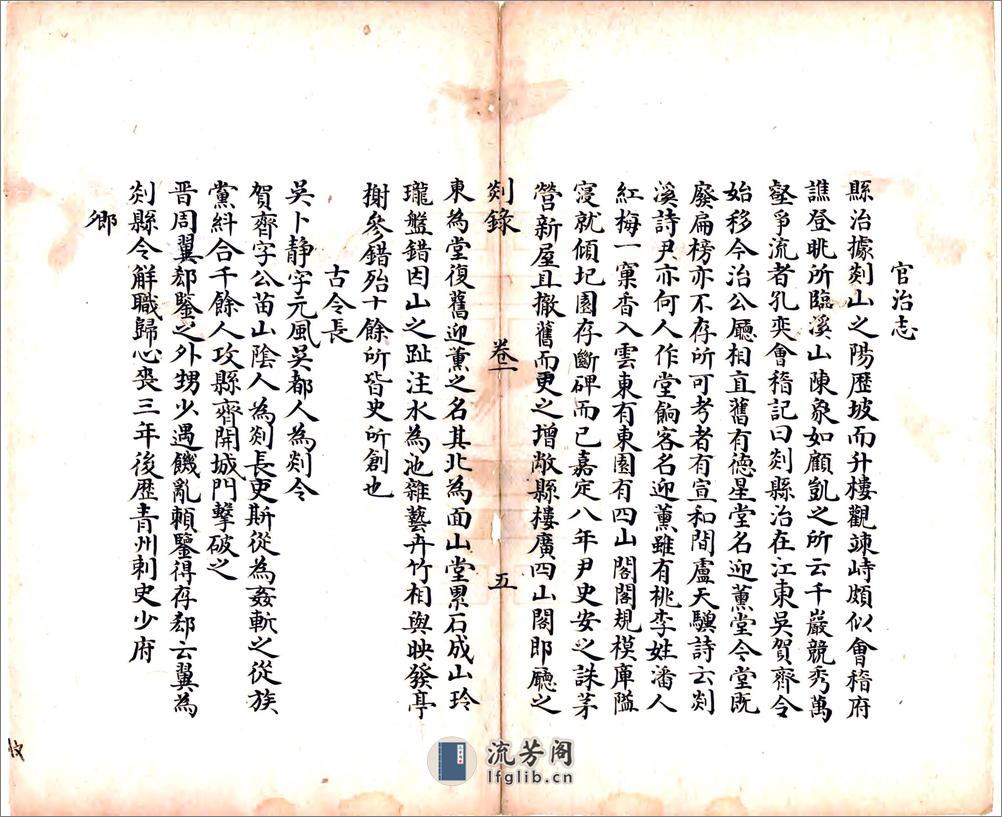 官治志
縣治據剡山之陽歷坡而升樓觀竦峙頗似會稽府
譙登眺所臨溪山陳象如顧凱之所云千巖競秀萬
壑爭流者孔奕會稽記曰剡縣治在江東吳賀齊令
始移今治公廳相直舊有德星堂名迎薰堂今堂既
廢扁榜亦不存所可考者有宣和間盧天驥詩云剡
溪詩尹亦何人作堂餉客名迎薰雖有桃李姓潘人
紅梅一窠香入雲東有東園有四山閣閣規模庳隘
寖就傾圮園存斷碑而已嘉定八年尹史安之誅茅
營新屋且撤舊而更之增敞縣樓廣四山閣即廳之
剡錄 卷一 五
東為堂復舊迎薰之名其北為面山堂累石成山玲
瓏盤錯因山之趾注水為池雜藝卉竹相與映發亭
榭參錯殆十餘所皆史所創也
古令長
吳卜靜字元風吳郡人為剡令
賀齊字公苗山陰人為剡長吏斯從為姦斬之從族
黨糾合千餘人攻縣齊開城門擊破之
晉周翼郗鑒之外甥少遇饑亂賴鑒得存郗云翼為
剡縣令解職歸心喪三年後歷青州刺史少府
鄉
流芳阁
lfglib.cn